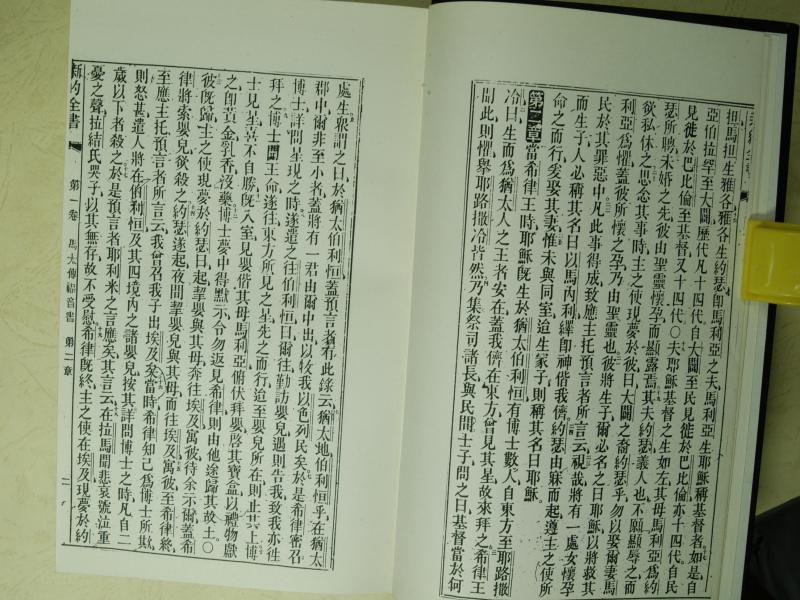 担馬担生雅各雅各生約瑟卽馬利亞之夫馬利亞生耶穌稱基督者如是自
亞伯拉罕至大闢歷代凡十四代自大闢至民見徙於巴比倫亦十四代自民
見徙於巴比倫至基督又十四代○夫耶穌基督之生如左其母馬利亞為約
瑟所聘未婚之先彼由聖靈懷孕而顯露焉其夫約瑟義人也不願顯辱之而
欲私休之思念其事時主之使現夢於彼曰大闢之裔約瑟乎勿以娶爾妻馬
利亞為懼蓋彼所懷之孕乃由聖靈也彼將生子爾必名之曰耶穌以將救其
民於其罪惡中凡此事得成致應主托預言者所言云視哉將有一處女懷孕
而生子人必稱其名曰以馬內利繹卽神偕我儕約瑟由寐而起遵主之使所
命之而行爰娶其妻惟未與同室迨生冢子則稱其名曰耶穌
第二章當希律王時耶穌旣生於猶太伯利恒有博士數人自東方至耶路撒
冷曰生而為猶太人之王者安在蓋我儕在東方曾見其星故來拜之希律王
聞此則懼舉耶路撒冷皆然乃集祭司諸長與民間士子問之曰基督當於何
處生眾謂之曰於猶太伯利恒蓋預言者有此錄云猶太地伯利恒乎在猶太
郡中爾非至小者蓋將有一君由爾中出以牧我以色列民矣於是希律密召
博士詳問星現之時遂遣之往伯利恒曰爾往勤訪嬰兒遇則告我致我亦往
拜之博士聞王命遂往東方所見之星先之而行迨至嬰兒所在則止其上博
士見星喜不自勝旣入室見嬰偕其母馬利亞俯伏拜嬰啓其寶盒以禮物獻
之卽黃金乳香沒藥博士夢中得默示令勿返見希律則由他途歸其故土○
彼旣歸主之使現夢於約瑟曰起挈嬰兒與其母奔往埃及寓彼待余示爾蓋希
希律將索嬰兒欲殺之約瑟遂起夜間挈嬰兒與其母而往埃及寓彼至希律終
至應主托預言者所言云我曾召我子出埃及矣當時希律知己為博士所欺
則怒甚遣人將在伯利恒及其四境內之諸嬰兒按其詳問博士之時凡自二
歲以下者殺之於是預言者耶利米之言應矣其言云在拉馬聞悲哀號泣重
憂之聲拉結氏哭子以其無存故不受慰希律旣終主之使在埃及現夢於約
新約全書 第一卷 馬太傳福音書 第二章 二